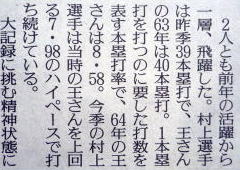 ２人とも前年の活躍から
一層、飛躍した。村上選手
は昨季39本塁打で、王さん
の63年は40本塁打。１本塁
打を打つのに要した打数を
表す本塁打率で、64年の王
さんは８・58。今季の村上
選手は当時の王さんを上回
る７・98のハイペースで打
ち続けている。
大記録に挑む精神状態に